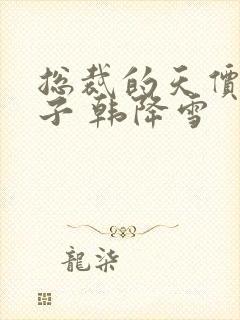 总裁的天價
子 韩降雪
龍柒